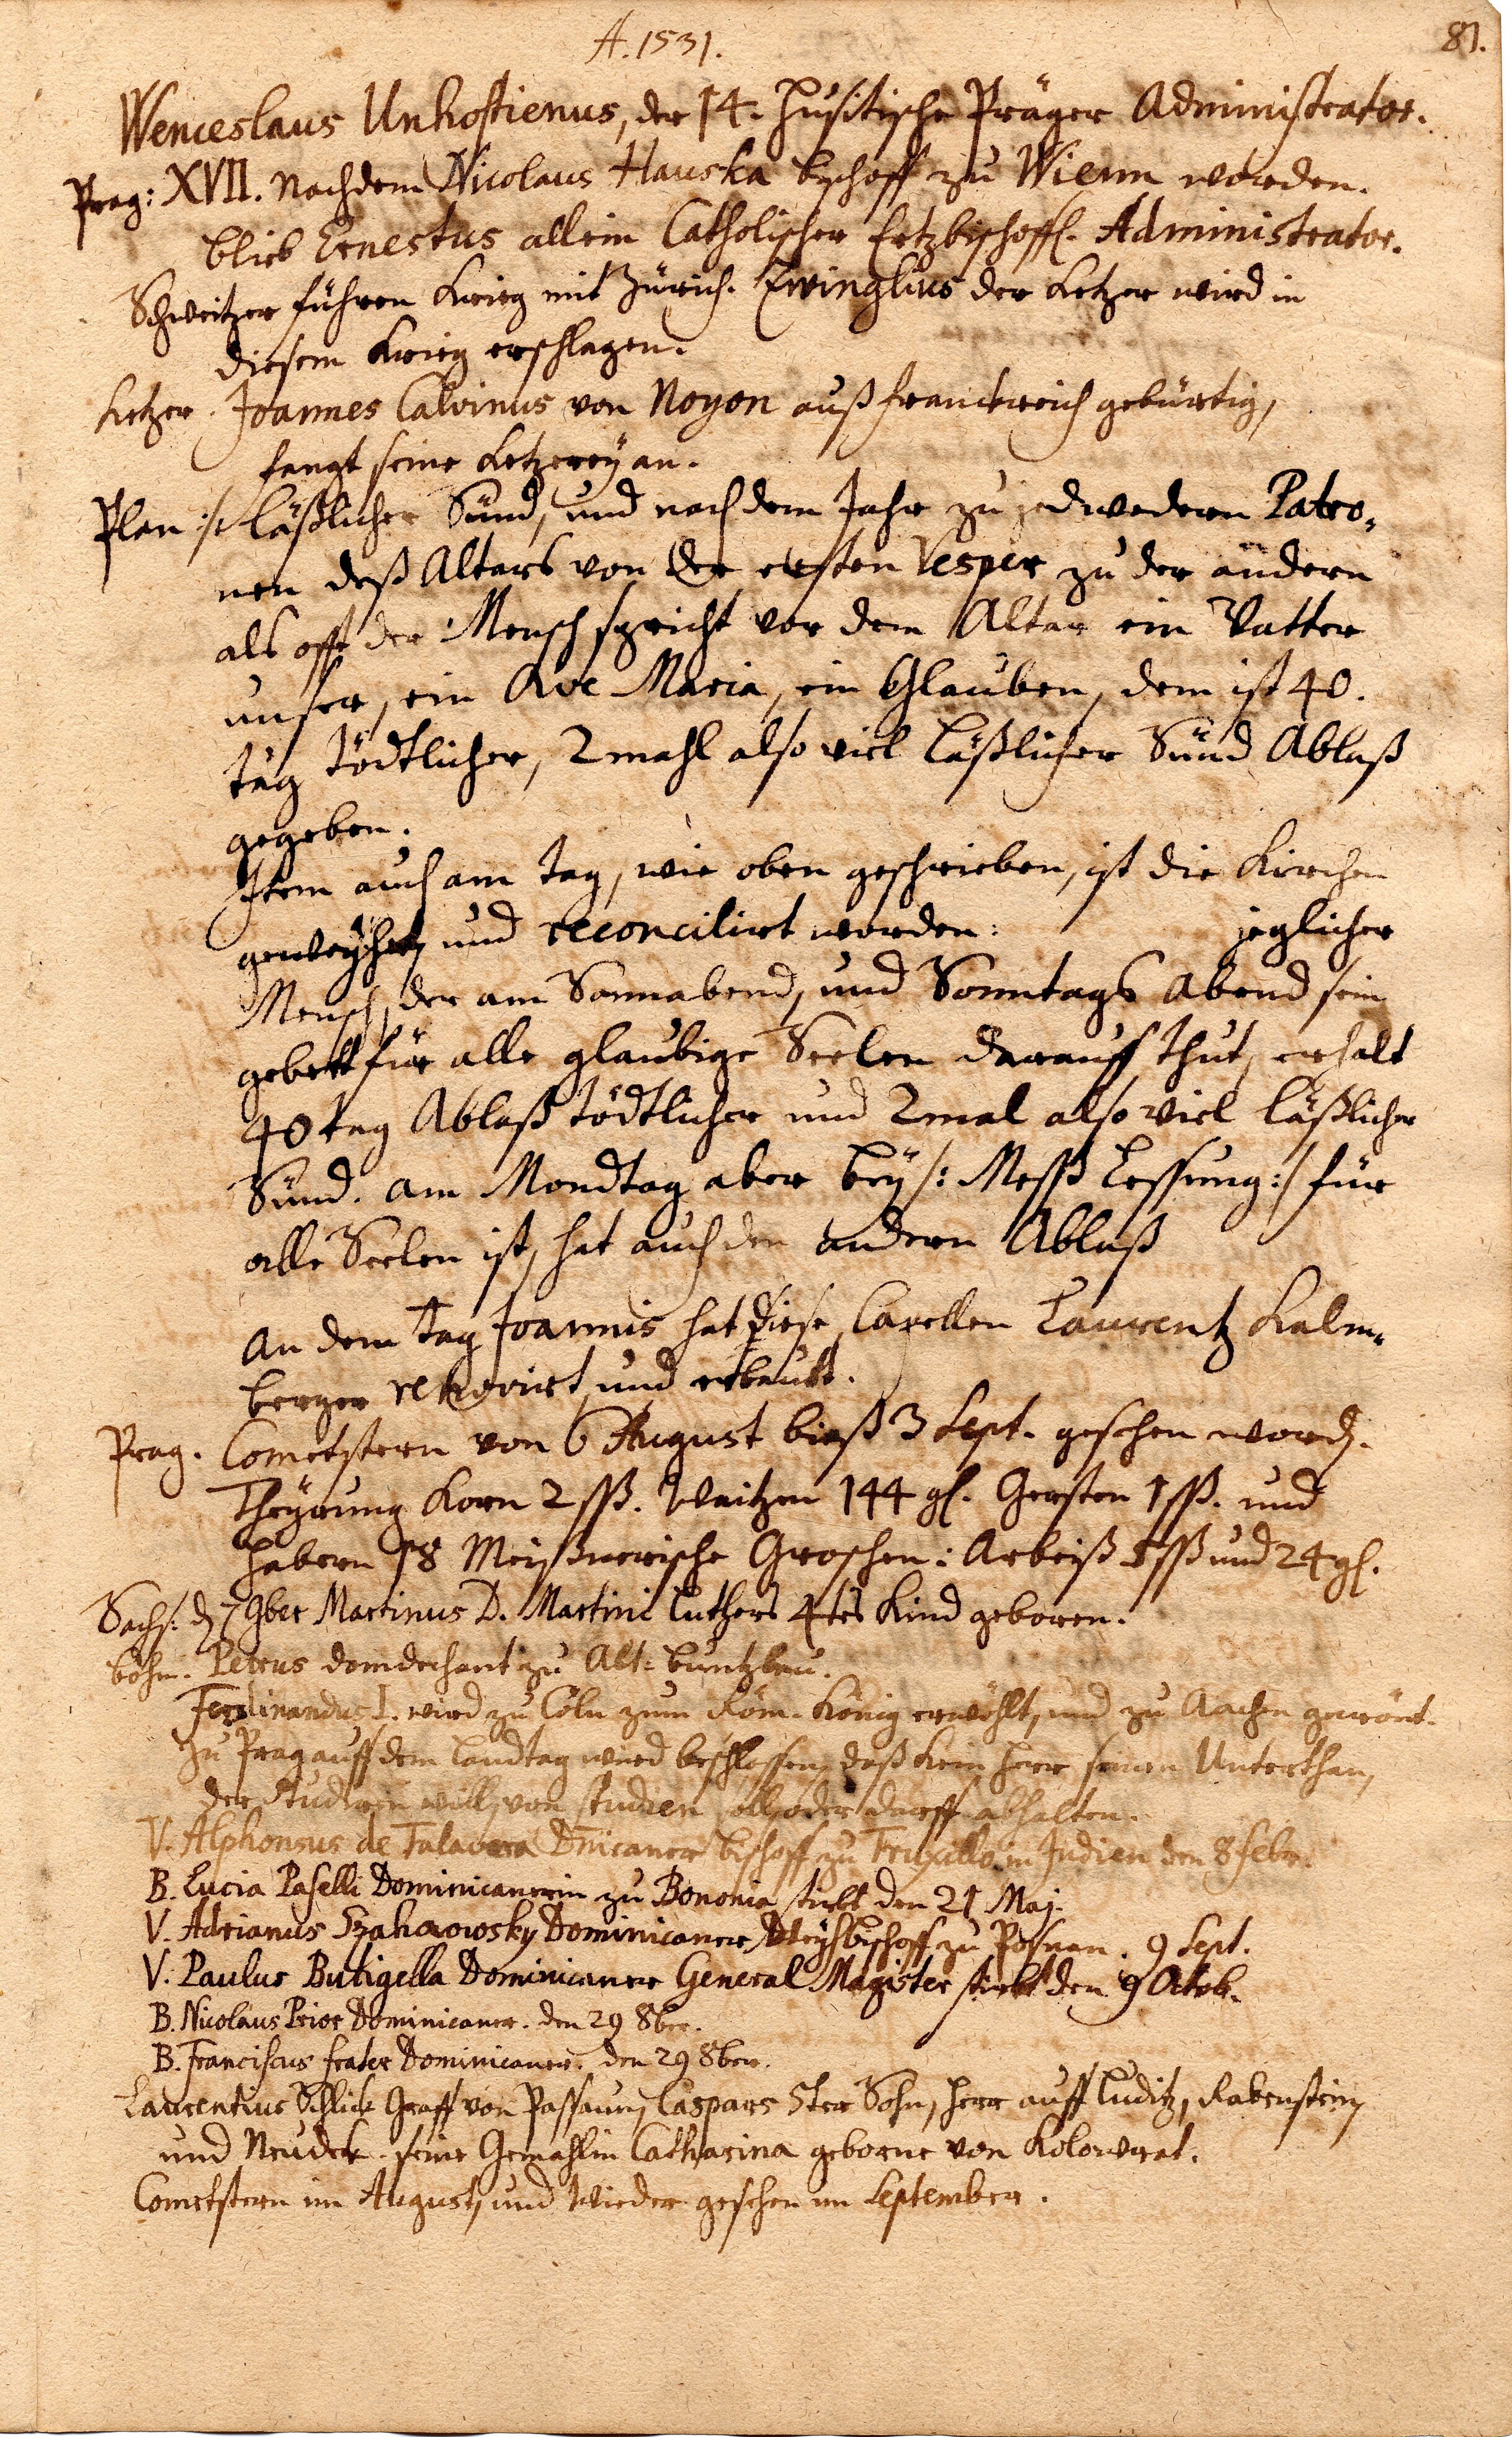 A. 1531.
81.
Wenceslaus Unhostienus, der 14. Husitische Präger Administrator.
Prag: XVII. Nachdem Nicolaus Hauska Bischoff zu Wienn worden.
blieb Ernestus allein Catholischer Ertzbischoffl. Administrator.
Schweitzer führen Krieg mit Zürich. Zwinglius der Ketzer wird in
diesem Krieg erschlagen.
Ketzer. Joannes Calvinus von Noyon auß Franckreich gebürtig,
fangt seine Ketzerey an.
Plan :/: läßlicher Sünd, und nach dem Jahr zu jedwedern Patro-
nen deß Altars von der ersten Vesper zu der andern
als offt der Mensch spricht vor dem Altar ein Vatter
unser, ein Ave Maria, ein Glauben, dem ist 40.
täg tödtlicher, 2 mahl also viel läßlicher Sünd Ablaß
gegeben.
Item auch am tag, wie oben geschrieben, ist die Kirchen
geweyhet und reconcilirt worden: jeglicher
Mensch, der am Sonnabend, und Sonntags Abend sein
gebett für alle glaubige Seelen darauff thut, erhalt
40 tag Ablaß tödtlicher und 2 mal also viel läßlicher
Sünd. am Mondtag aber bey /: Mess Lessung :/ für
alle Seelen ist, hat auch den andern Ablaß
An dem tag Joannis hat diese Capellen Laurentz Kalm-
berger renovirt und erbaut.
Prag. Cometstern von 6 August bieß 3 Sept. gesehen word.
Theyrung Korn 2 ßß. Waitzen 144 gl. Gersten 1 ßß. und
Habern 58 Meißnerische Groschen: Arbeiß 1 ßß und 24 gl.
Sachs: d. 7 9ber Martinus D. Martini Luthers 4tes Kind geboren.
böhm. Petrus domdechant zu Alt-buntzlau.
Ferdinandus I. wird zu Cöln zum Röm. König erwöhlt, und zu Aachen gecrönt.
Zu Prag auff dem Landtag wird beschlossen, daß kein Herr seinen Unterthan,
der studiren will, von studien soll oder darff abhalten.
V. Alphonsus de Talavera Dnicaner Bischoff zu Truxillo in Indien den 8 Febr.
B. Lucia Paselli Dominicanerin zu Bononia stirbt den 21 Maj.
V. Adrianus Dominicaner Weyhbischoff zu Posnan. 9 Sept.
V. Paulus Butigella Dominicaner General Magister stirbt den 9 Octob.
B. Nicolaus Prior Dominicaner. den 29 8ber.
B. Franciscus frater Dominicaner. den 29 8ber.
Laurentius Schlick Graff von Passaun, Caspars 5ter Sohn, Herr auff Luditz, Rabenstein,
und Neudek. seine Gemahlin Catharina geborne von Kolowrat.
Cometstern im August, und wieder gesehen im September.